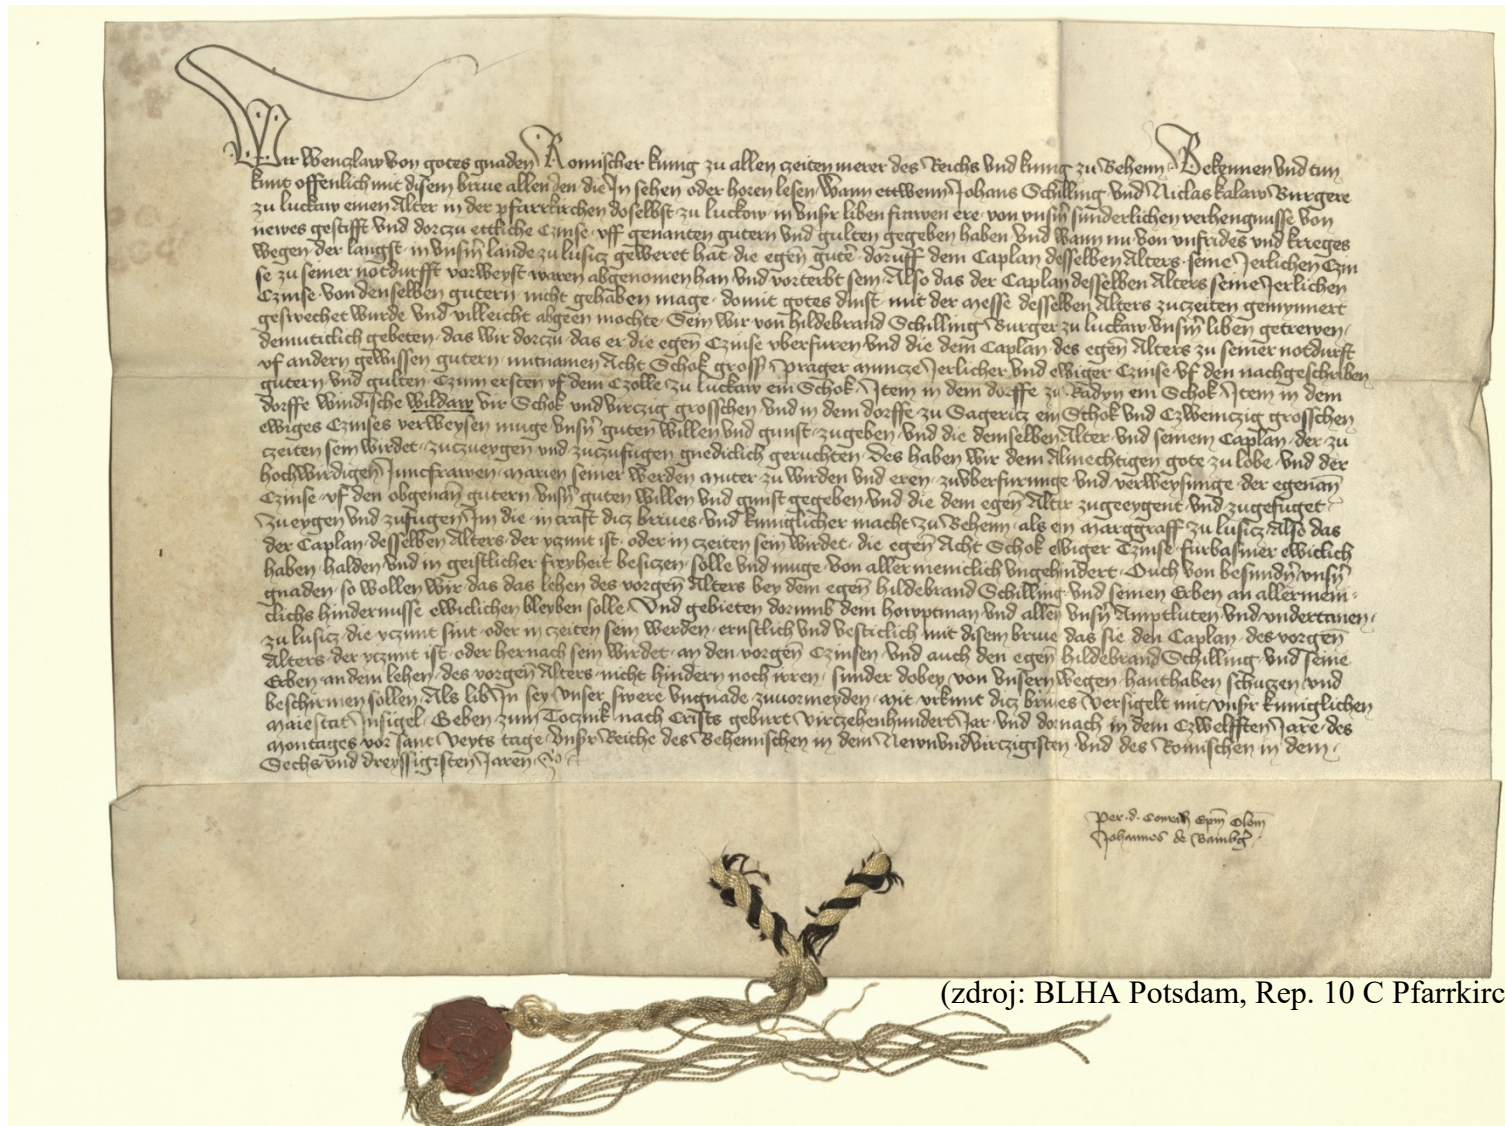 Wir Wenczlaw von gotes gnaden Romischer kunig zu allen czeiten merer des Reichs vnd kunig zu Behem Bekennen vnd tun
kunt offenlich mit disem briue allen den die In sehen oder horen lesen Wann ettwenn Johans Schilling vnd Niclas kalaw Burgere
zu luckaw einen Alter in der pfarrkirchen doselbst zu luckow in vnsr liben frawen ere von vnsrn sunderlichen verhengnusse von
newes gestifft vnd dorczu ettliche Czinse vff genanten gutern vnd gulten gegeben haben vnd wann nu von vnfrides vnd krieges
wegen der langst in vnsrm lande zu lusicz geweret hat die egen gute doruff dem Caplan desselben Alters seine Jerlichen Czin
se zu seiner notdurfft vorweyst waren abgenomen han vnd vorterbt sein Also das der Caplan desselben Alters seine Jerlichen
Czinse von denselben gutern nicht gehaben mage domit gotes dinst mit der messe desselben Alters zuczeiten gemynnert
geswechet wurde vnd villeicht abgeen mochte Sein wir von hildebrand Schilling Burger zu luckaw vnsrm liben getrewen
demuticlich gebeten das wir dorczu das er die egen Czinse vberfuren vnd die dem Caplan des egen Alters zu seiner notdurft
vf andern gewissen gutern mitnamen Acht Schok gross Prager muncze Jerlicher vnd ewiger Czinse vf den nachgeschriben
gutern vnd gulten Czum ersten vf dem Czolle zu luckaw ein Schok Item in dem dorffe zu Radyn ein Schok Item in dem
dorffe windische wildaw vir Schok vnd virczig grosschen vnd in dem dorffe zu Sagericz ein Schok vnd Czwenczig grosschen
ewiges Czinses verweysen muge vnsrn guten willen vnd gunst zugeben vnd die demselben Alter vnd seinem Caplan der zu
czeiten sein wirdet zuczueygen vnd zuczufugen gnediclich geruchten Des haben wir dem Almechtigen gote zu lobe vnd der
hochwirdigen Juncfrawen Marien seiner werden muter zu wirden vnd eren zuvberfurunge vnd verweysunge der egenan
Czinse vf den obgenan gutern vnsrn guten willen vnd gunst gegeben vnd die dem egen Alter zugeeygent vnd zugefuget
zueygen vnd zufugen Im die in craft dicz briues vnd kuniglicher macht zu Behem als ein Marggraff zu lusicz Also das
der Caplan desselben Alters der yczunt ist oder in czeiten sein wirdet die egen Acht Schok ewiger Czinse furbasmer ewiclich
haben halden vnd in geistlicher freyheit besiczen solle vnd muge von allermeniclich vngehindert Ouch von besundrn vnsrn
gnaden so wollen wir das das lehen des vorgen Alters bey dem egen hildebrand Schilling vnd seinen Erben an allermeni
clichs hindernusse ewiclichen bleyben solle Vnd gebieten dorumb dem howptman vnd allen vnsrn Amptluten vnd vndertanen
zu lusicz die yczunt sint oder in czeiten sein werden ernstlich vnd vesticlich mit disem briue das sie den Caplan des vorgen
Alters der yczunt ist oder hernach sein wirdet an den vorgen Czinsen vnd auch den egen hildebrand Schilling vnd seine
Erben an dem lehen des vorgen Alters nicht hindern noch irren sunder dobey von vnsern wegen hanthaben schuczen vnd
beschirmen sollen Als lib In sey vnser swere vngnade zuuormeyden Mit vrkunt dicz briues versigelt mit vnsr kuniglichen
Maiestat Insigel Geben zum Tocznik nach Crists geburt virczehenhundert Jar vnd dornach in dem Czwelfften Jare des
Montages vor sant veyts tage vnsr Reiche des Behemischen in dem Newnvndvirczigisten vnd des Romischen in dem
Sechs vnd dreyssigisten Jaren
Per d Conrad Epm Olom
Johannes de Bambg
(zdroj: BLHA Potsdam, Rep. 10 C Pfarrkirc